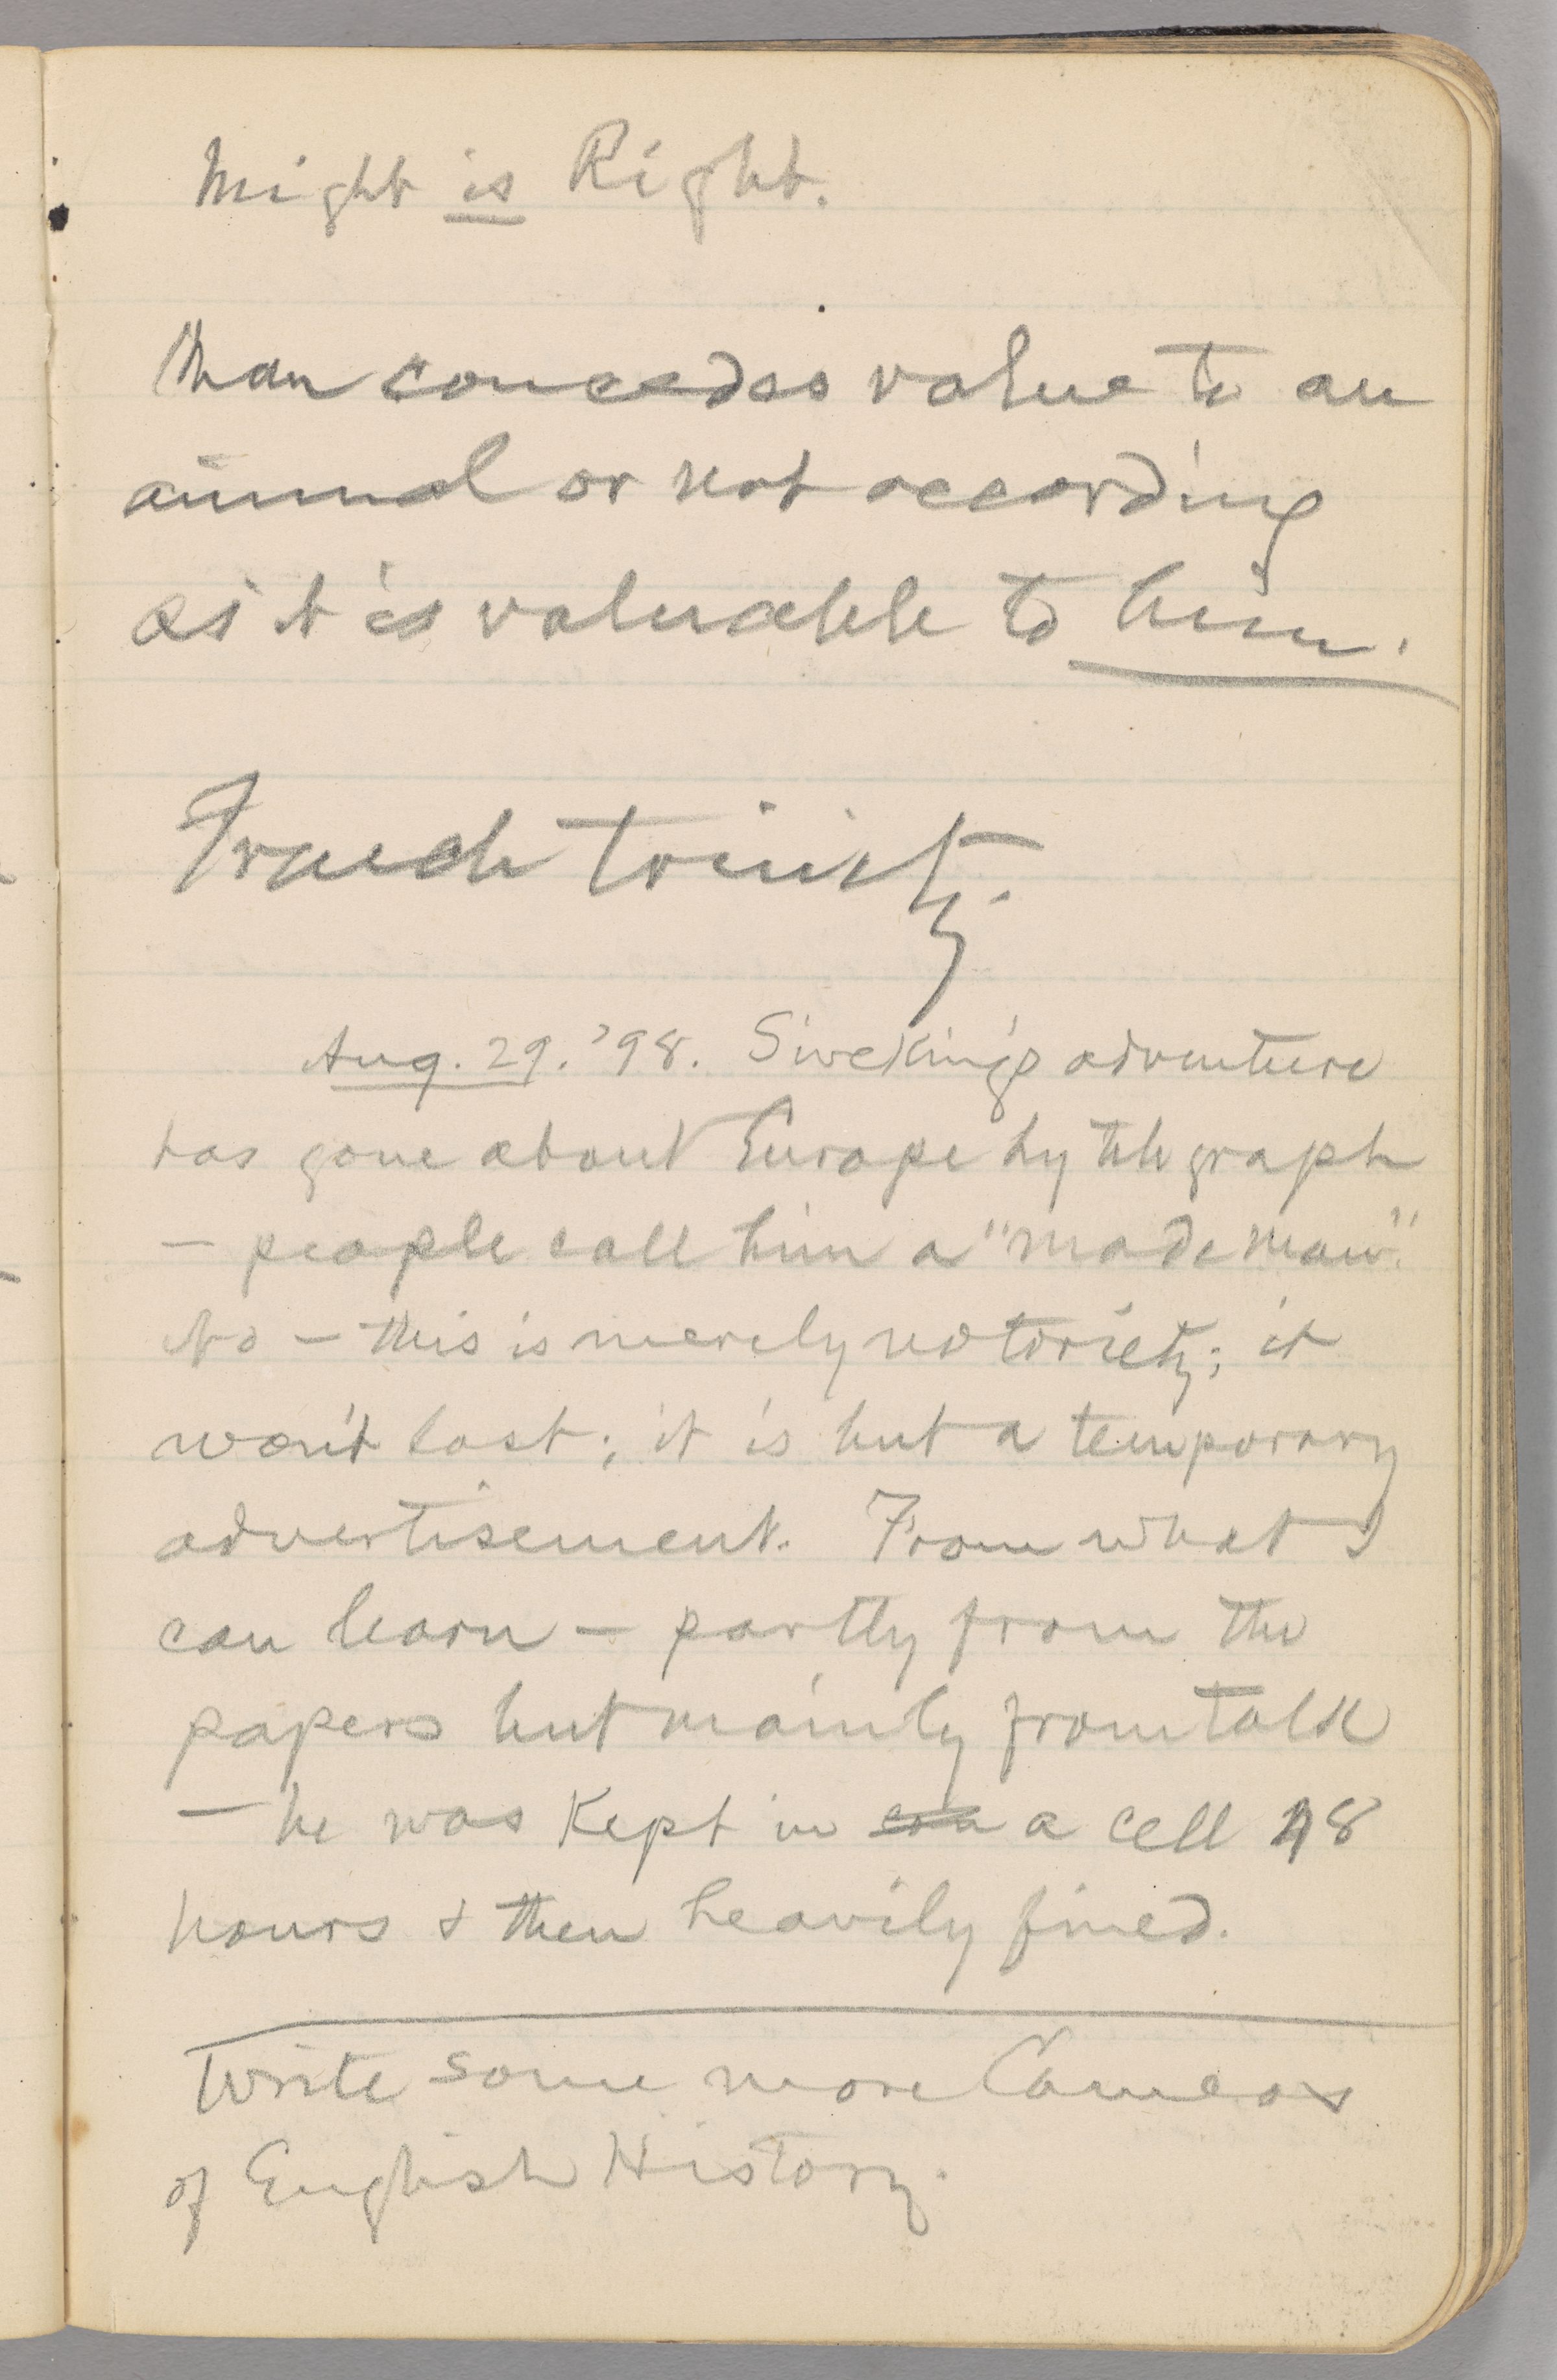 Might is Right.
Man concedes value to an
animal or not according
as it is valuable to him.
French trinity.
Aug. 29. '98. Siveking's adventure
has gone about Europe by telegraph
— people call him a "made man".
No — this is merely notoriety; it
won't last; it is but a temporary
advertisement. From what I
can learn — partly from the
papers but mainly from talk
— he was kept in a cell 48
hours & then heavily fined.
Write some more Cameos
of English History.